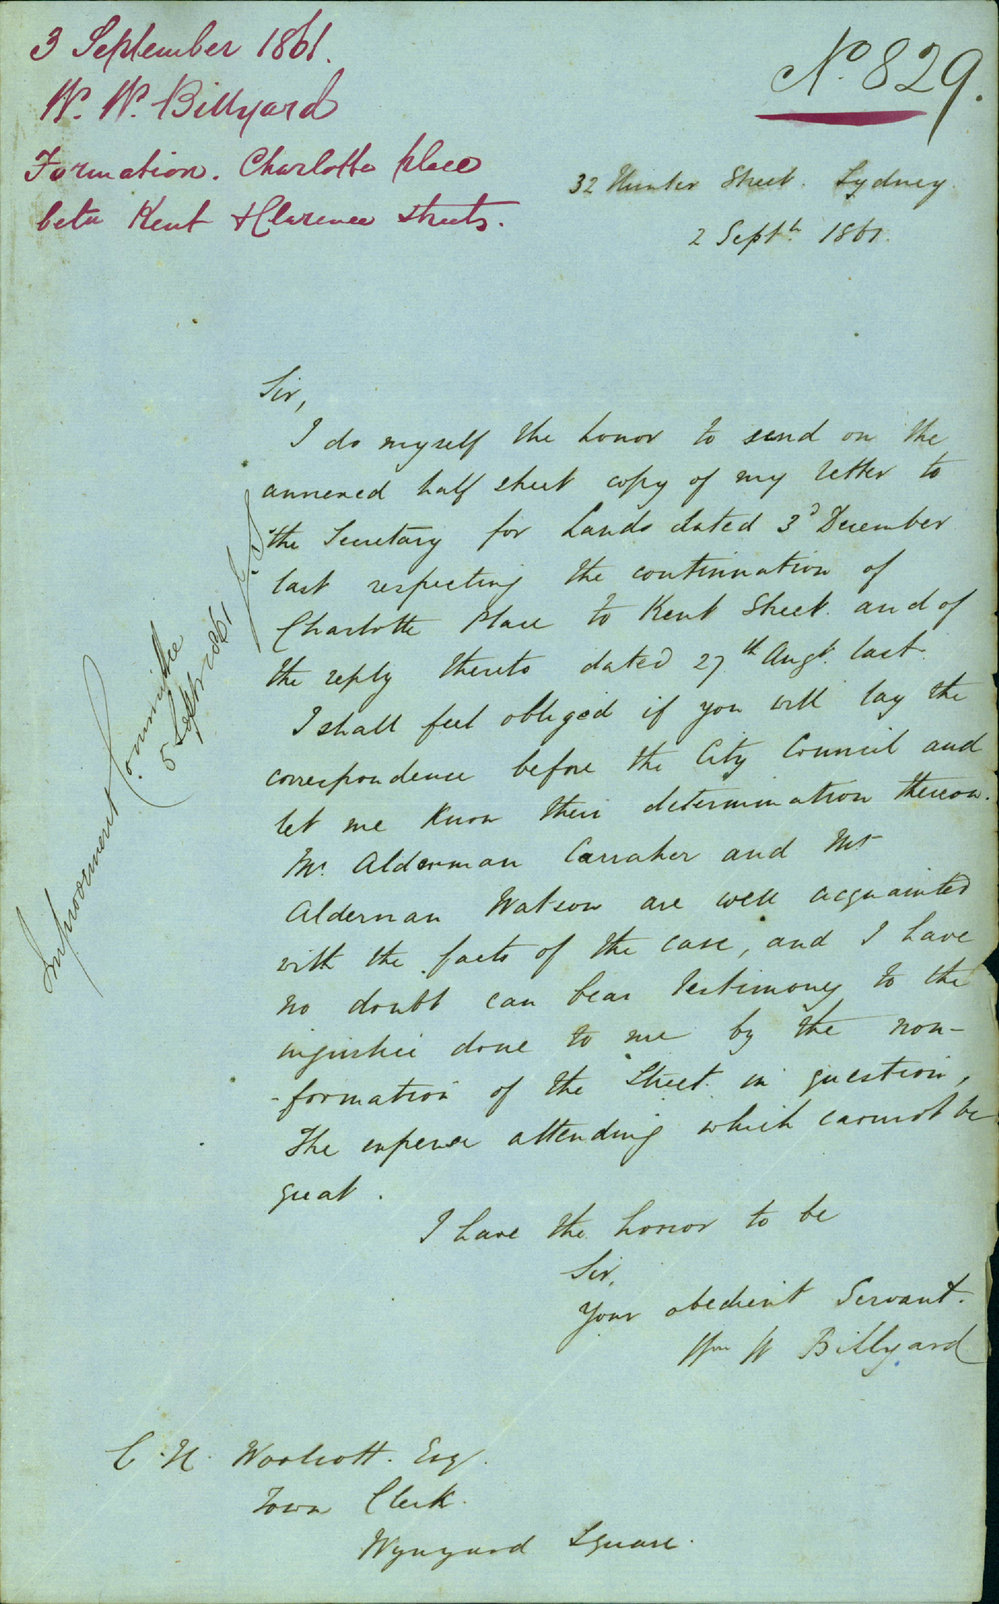 3 September 1861.
W. W. Billyard
Formation. Charlotte place
betn Kent & Clarence streets.
No. 829.
32 Hunter Street. Sydney.
2 Septh. 1861.
Sir,
I do myself the honor to send on the
annexed half sheet copy of my letter to
the Secretary for Lands dated 3d December
last respecting the continuation of
Charlotte Place to Kent Street and of
the reply thereto dated 27th Augt. last.
I shall feel obliged if you will lay the
correspondence before the City Council and
let me know their determination thereon.
Mr. Alderman Carraher and Mr
Alderman Watson are well acquainted
with the facts of the case, and I have
no doubt can bear testimony to the
injustice done to me by the non-
-formation of the Street in question,
The expense attending which cannot be
great.
I have the honor to be
Sir,
Your obedient Servant.
Wm W Billyard
C. H. Woolcott. Esq.
Town Clerk.
Wynyard Square.
Improvement Committee
5 Septr 1861